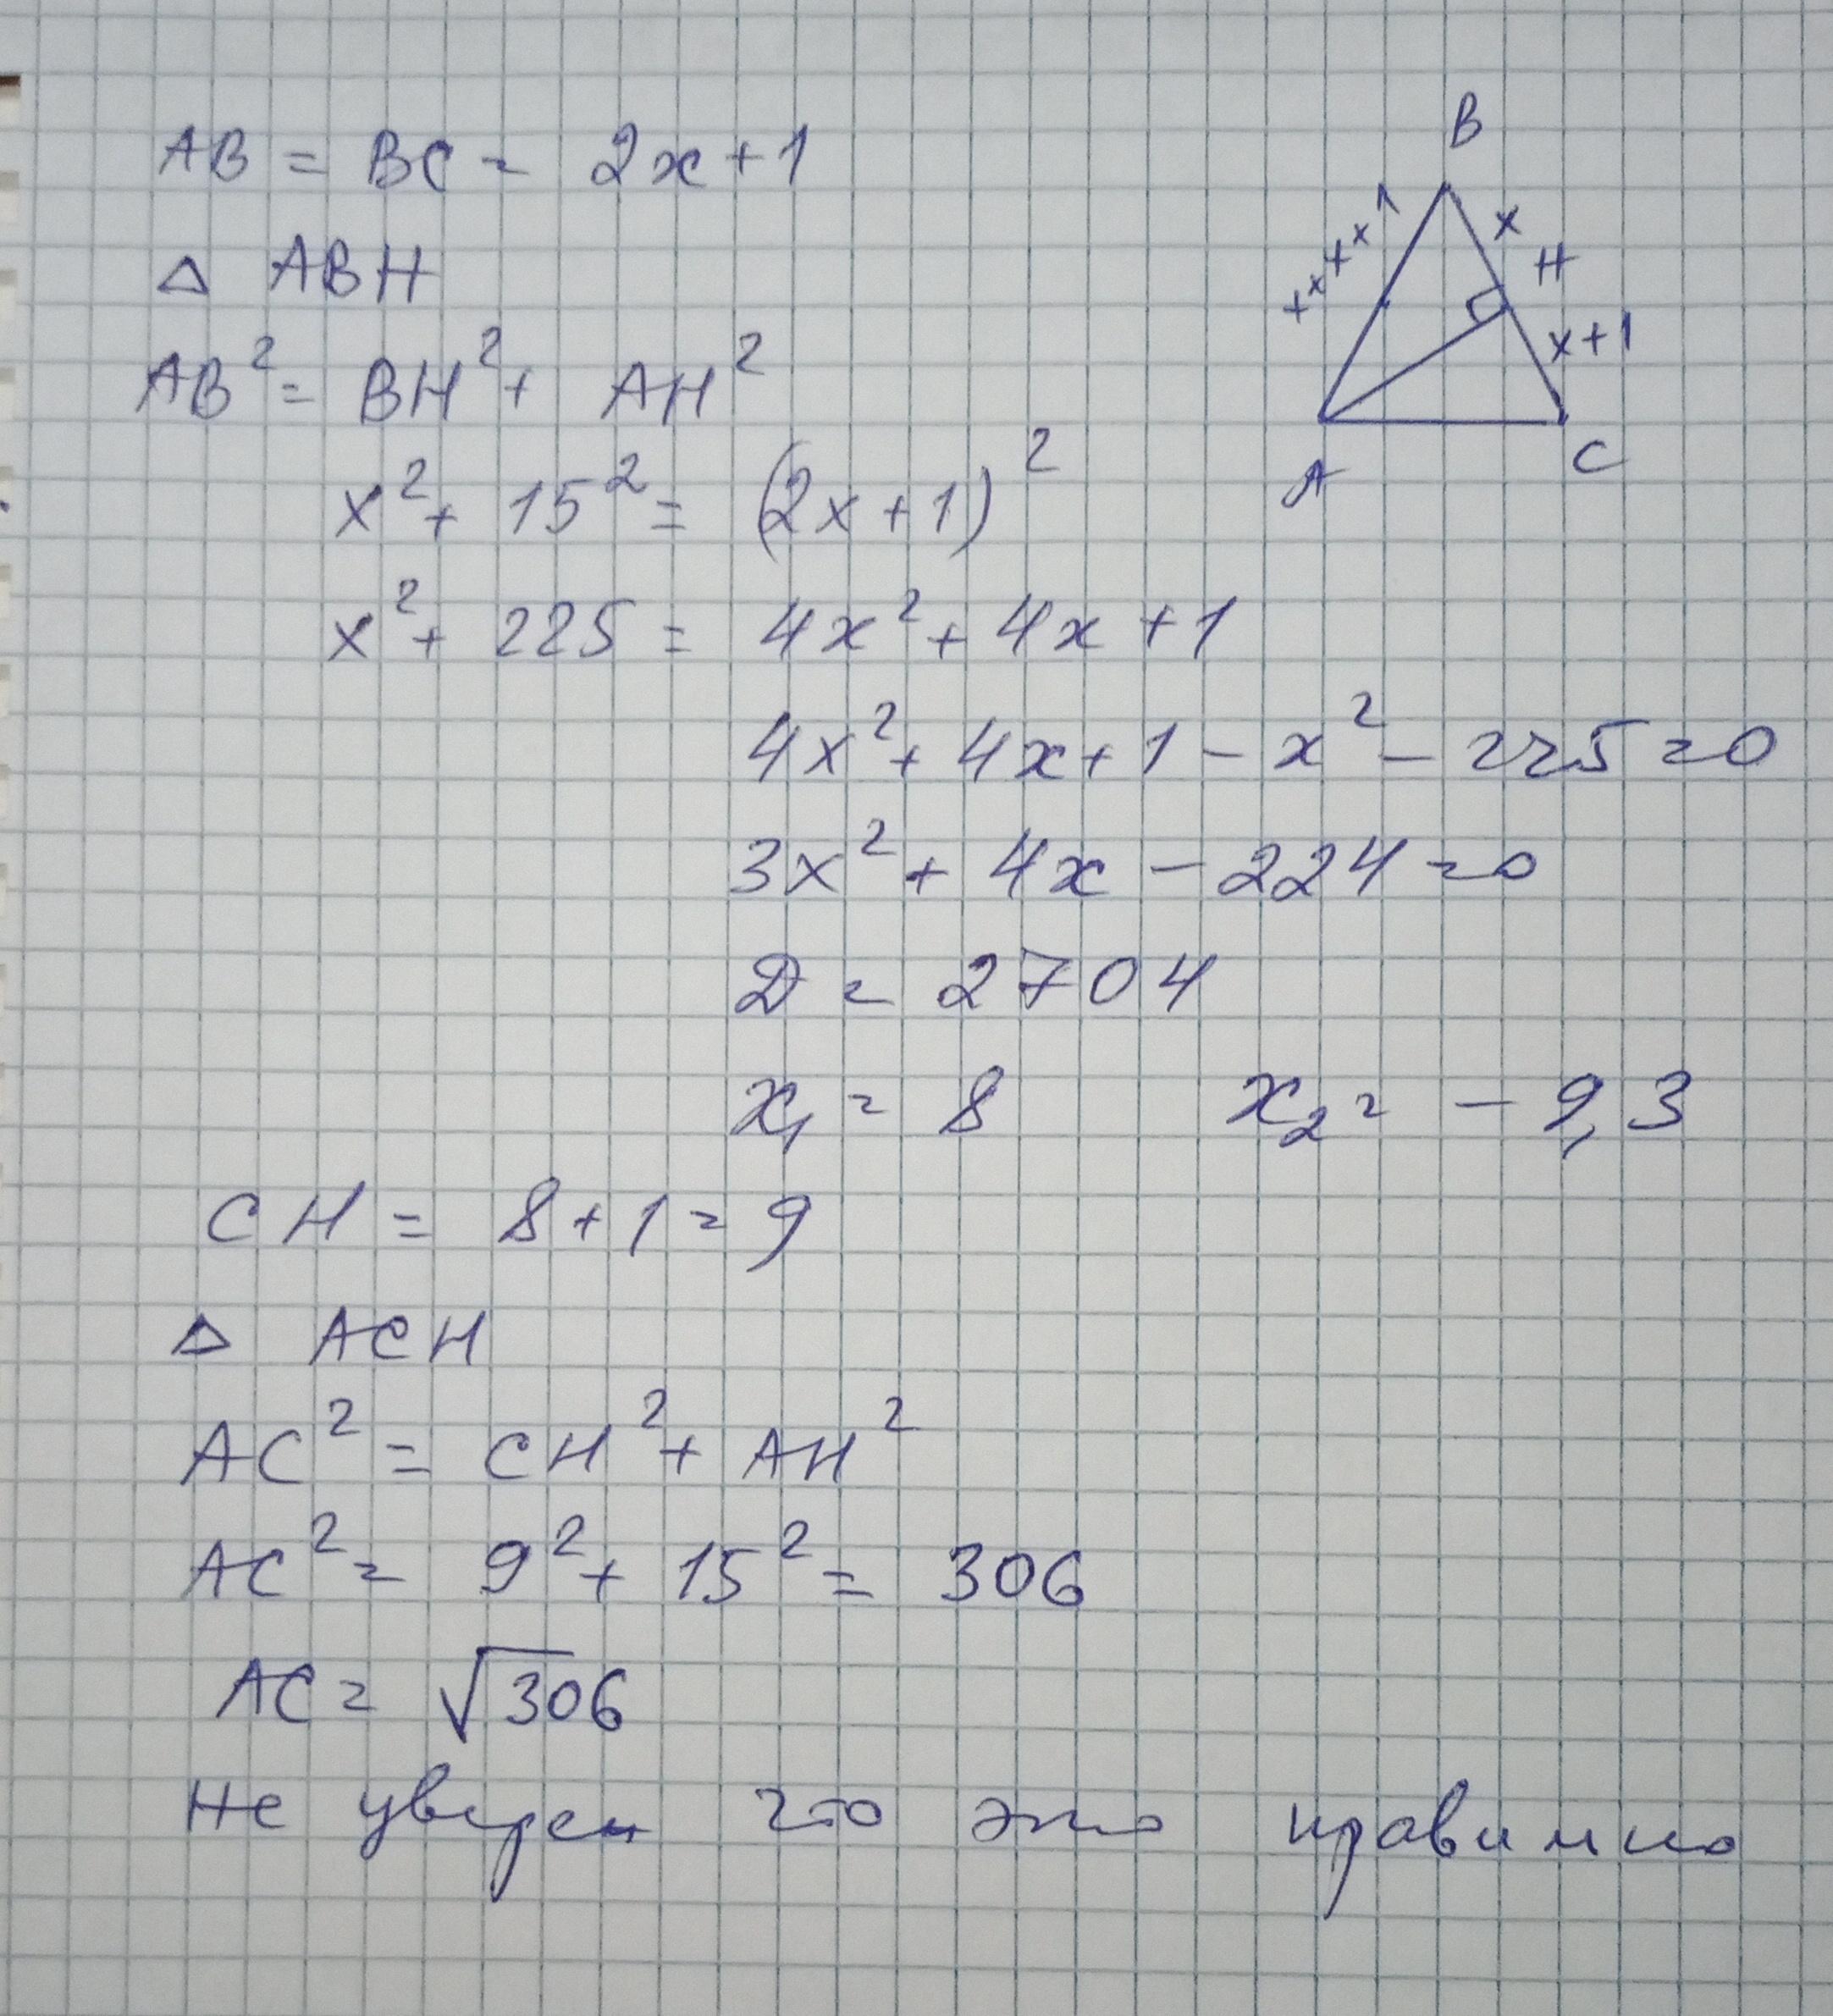 AB = BC = 2x+1
△ ABH
AB² = BH² + AH²
x² + 15² = (2x+1)²
x² + 225 = 4x² + 4x + 1
4x² + 4x + 1 - x² - 225 = 0
3x² + 4x - 224 = 0
D = 2704
x₁ = 8 x₂ = -9,3
CH = 8+1 = 9
△ ACH
AC² = CH² + AH²
AC² = 9² + 15² = 306
AC = √306
Не уверен что это правильно
B
x
H
x+1
A
C